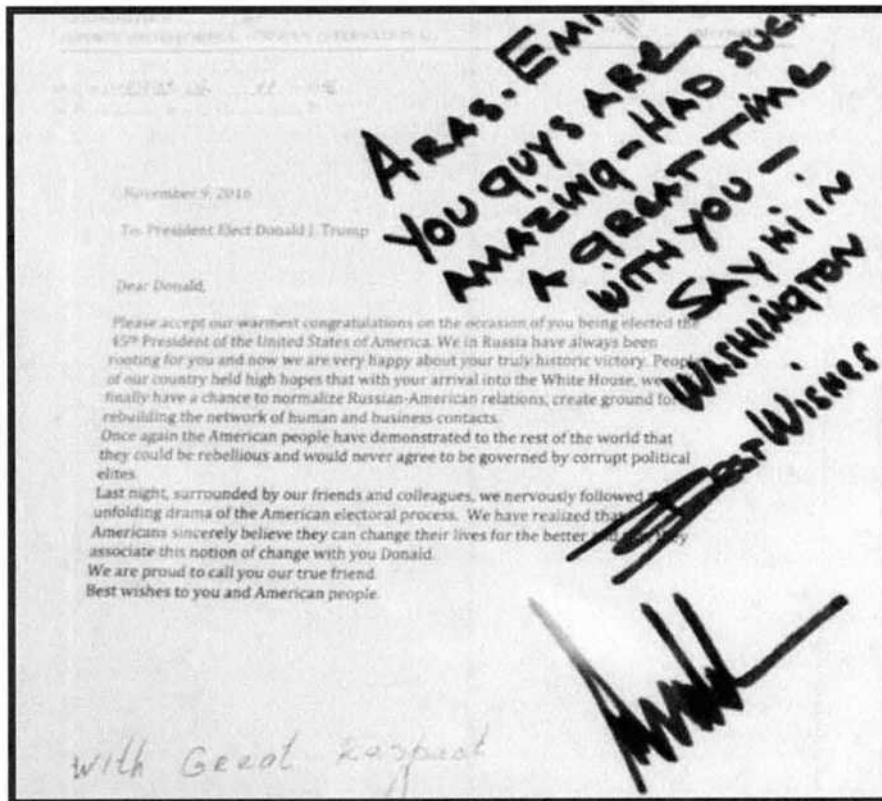 November 9, 2016
To: President Elect Donald J. Trump
Dear Donald,
Please accept our warmest congratulations on the occasion of you being elected the
45th President of the United States of America. We in Russia have always been
rooting for you and now we are very happy about your truly historic victory. People
of our country held high hopes that with your arrival into the White House, we
finally have a chance to normalize Russian-American relations, create ground for
rebuilding the network of human and business contacts.
Once again the American people have demonstrated to the rest of the world that
they could be rebellious and would never agree to be governed by corrupt political
elites.
Last night, surrounded by our friends and colleagues, we nervously followed
unfolding drama of the American electoral process. We have realized that
Americans sincerely believe they can change their lives for the better they
associate this notion of change with you Donald.
We are proud to call you our true friend.
Best wishes to you and American people.
With Great Respect
ARAS - EMI
YOU GUYS ARE
AMAZING - HAD SUCH
A GREAT TIME
WITH YOU -
SAY HI IN
WASHINGTON
BEST WISHES